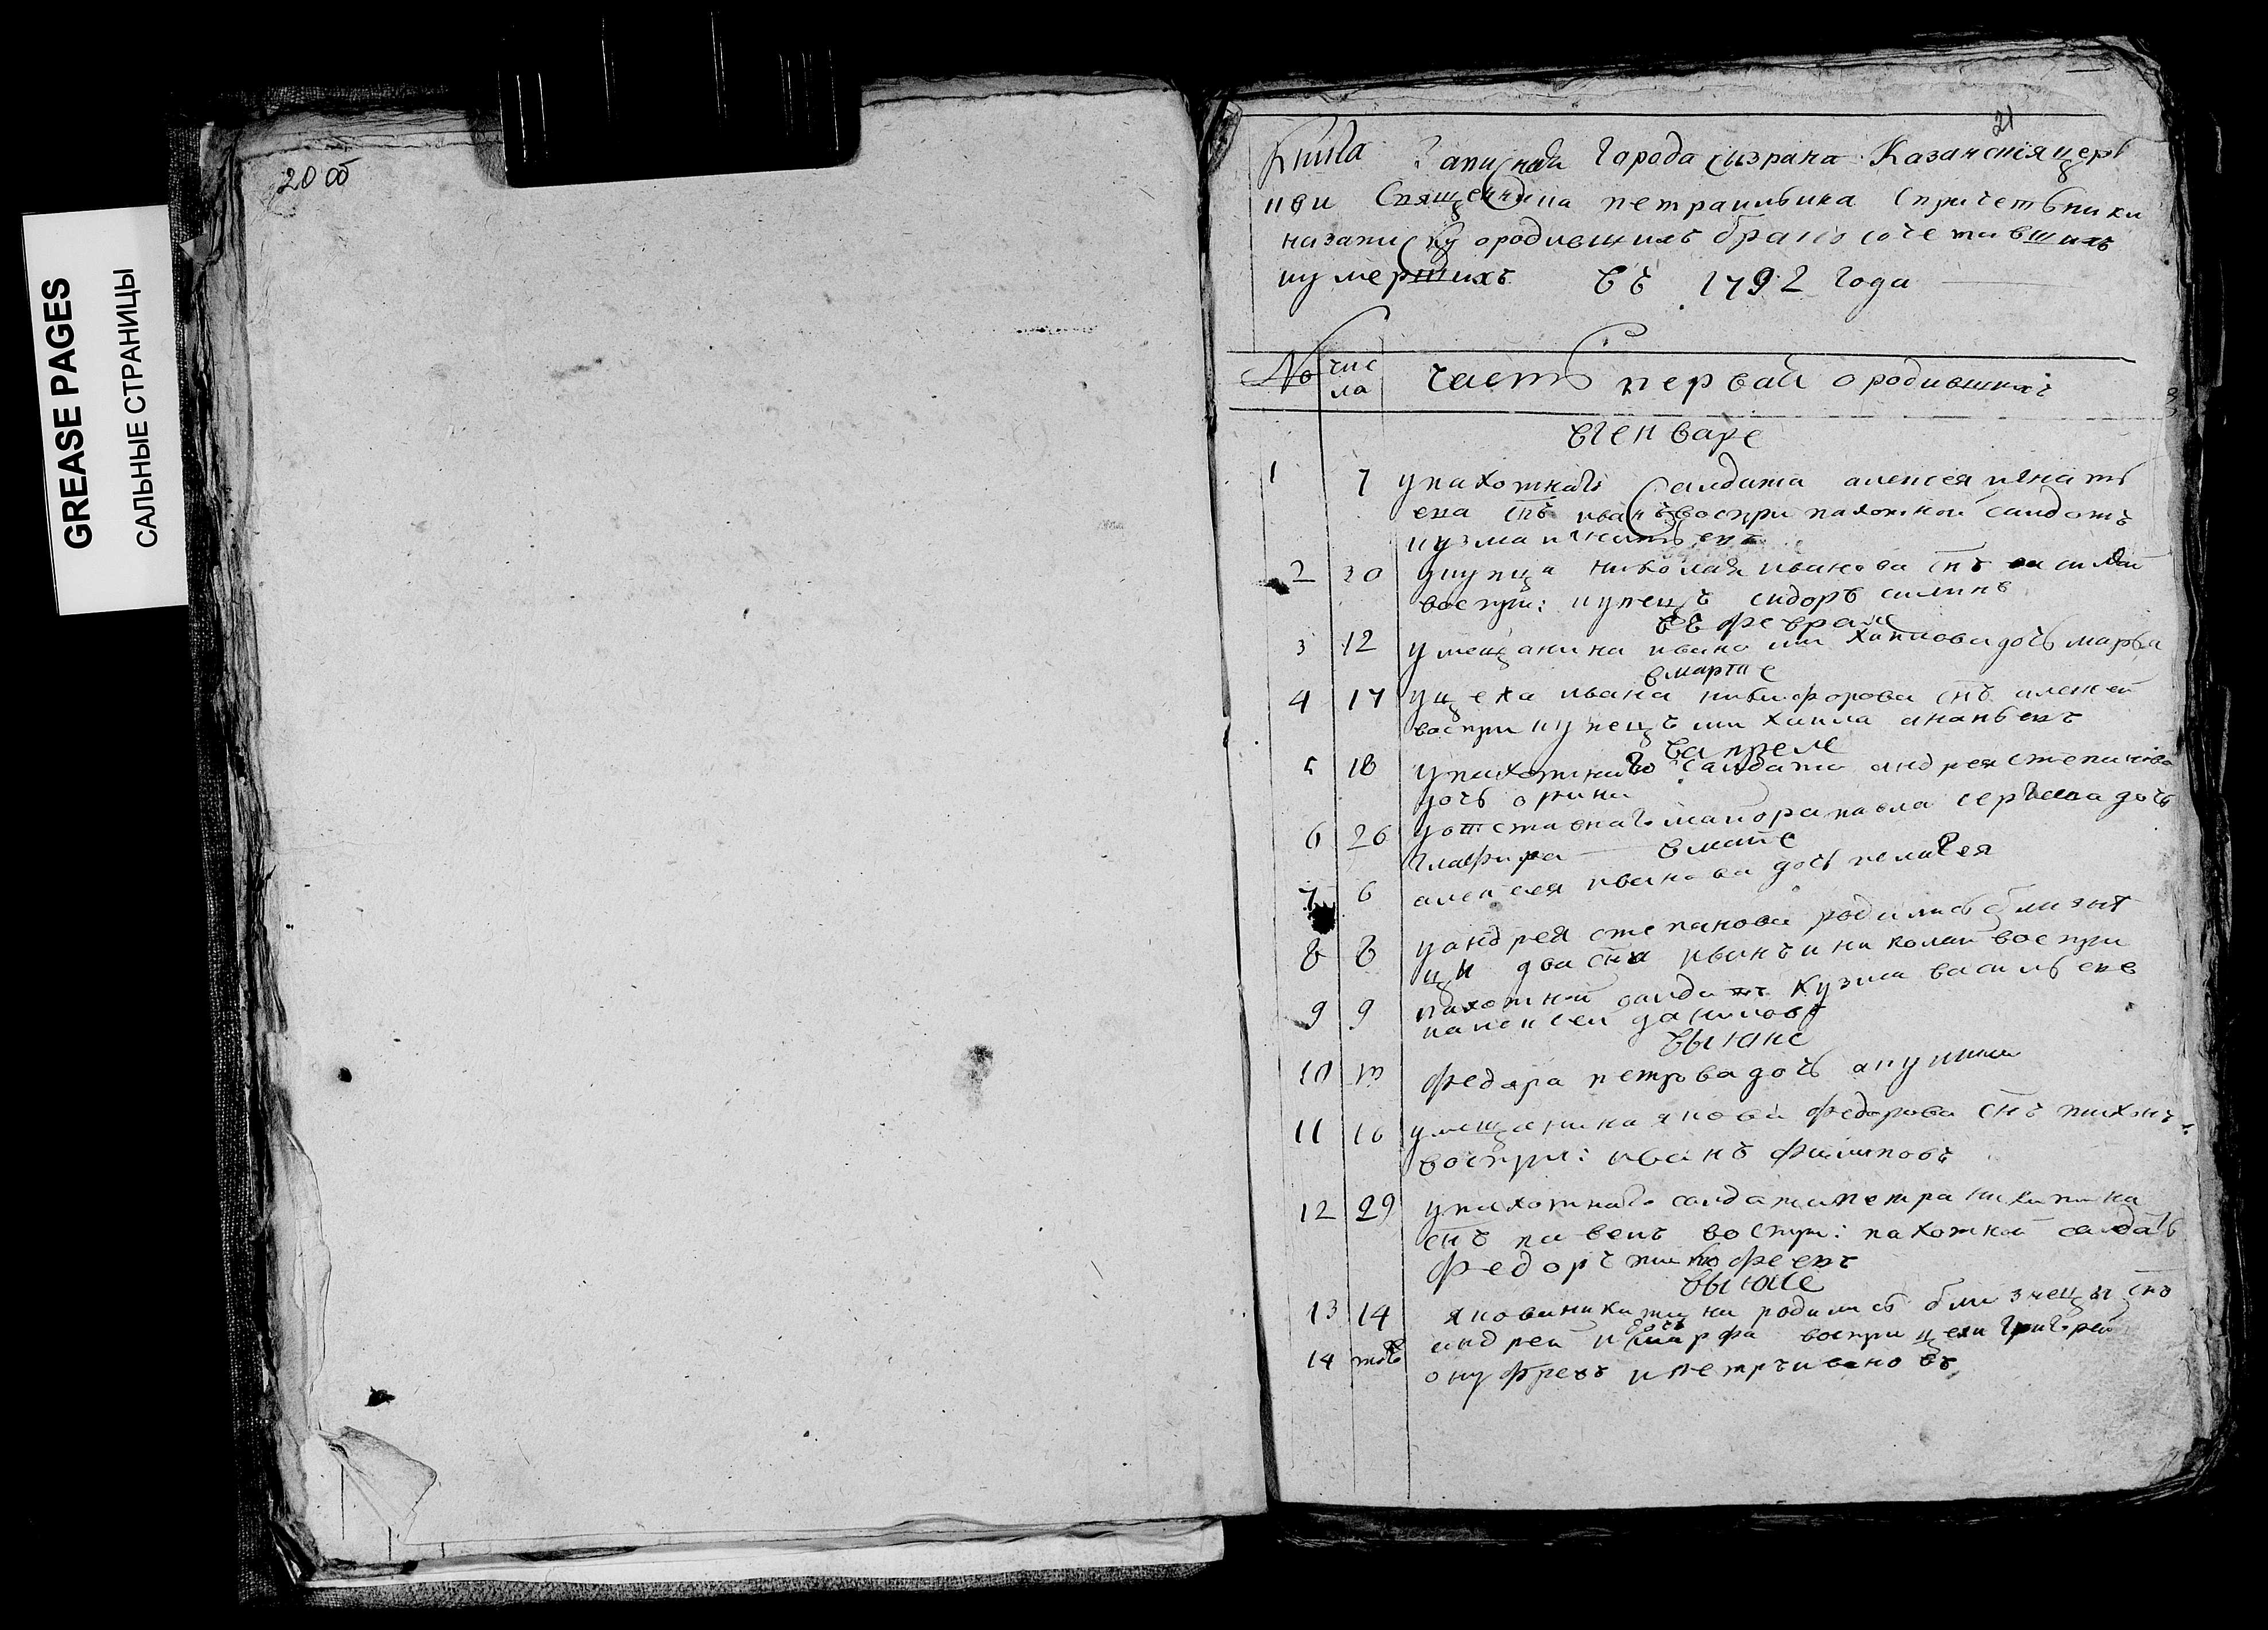 GREASE PAGES
САЛЬНЫЕ СТРАНИЦЫ
20 об
21
Книга Записная Города сызрана Казанския церк
кви Священника петра ильина спричетъники
назаписку ородившихъ бракъ сочетавшихъ
иумершихъ въ 1792 Года
№ чис
ла
часть первая ородившихъ
вгенваре
1 7 упахотнаго салдата алексея игнать
ева снъ иванъ воспри пахотной салдатъ
кузма игнатьевъ
2 20 укупца николая иванова снъ
воспри: купецъ сидоръ силинъ
въ феврале
3 12 умещанина ивана михаилова дочь марья
вмарте
4 17 уцеха ивана никифорова снъ алексей
воспри купецъ михаила ананьевъ
вапреле
5 18 упахотнаго салдата андрея степанова
дочь орина
6 26 уотставнаго маиора павла сергеева дочь
глафира
вмаие
7 6 алексея иванова дочь пелагея
8 8 уандрея степанова родились близня
цы два сна иванъ и николаи воспри
9 9 пахотной салдатъ кузма васильевъ
иалексеи даниловъ
виюне
10 13 федора петрова дочь акулина
11 16 умещанина якова федорова снъ тихонъ
воспри: иванъ филиповъ
12 29 упахотнаго салдата петра никитина
снъ павелъ воспри: пахотной салдатъ
федоръ тимофеевъ
виюле
13 14 якова никитина родились близнецы снъ
андреи и дочь марфа воспри цехи Григореи
14 того онуфревъ ипетръ ивановъ